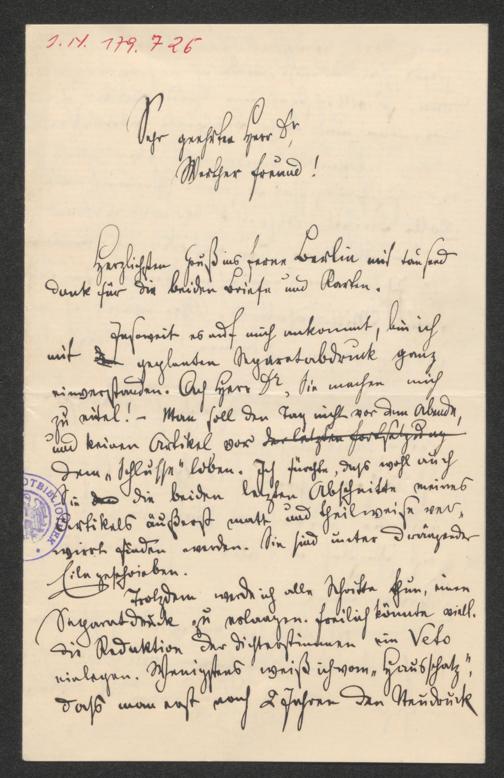 J. N. 179.726
Sehr geehrter Herr Dr,
Werther Freund!
Herzlichsten Gruß ins ferne Berlin mit tausend
Dank für die beiden Briefe und Karten.
Insoweit es auf mich ankommt, bin ich
mit geplanten Separatabdruck ganz
einverstanden. Ach Herr Dr, Sie machen mich
zu eitel! – Man soll den Tag nicht vor dem Abende,
und keinen Artikel vor der letzten Fortsetzung
dem „Schlusse" loben. Ich fürchte, dass wohl auch
Sie die beiden letzten Abschnitte meines
Artikels äußerst matt und theilweise ver-
wirrt finden werden. Sie sind unter drängender
Eile geschrieben.
Trotzdem werde ich alle Schritte thun, einen
Separatdruck zu erlangen. Freilich könnte viell.
die Redaktion der Dichterstimmen ein Veto
einlegen. Wenigstens weiß ich vom „Hausschatz",
dass man erst nach 2 Jahren den Neudruck